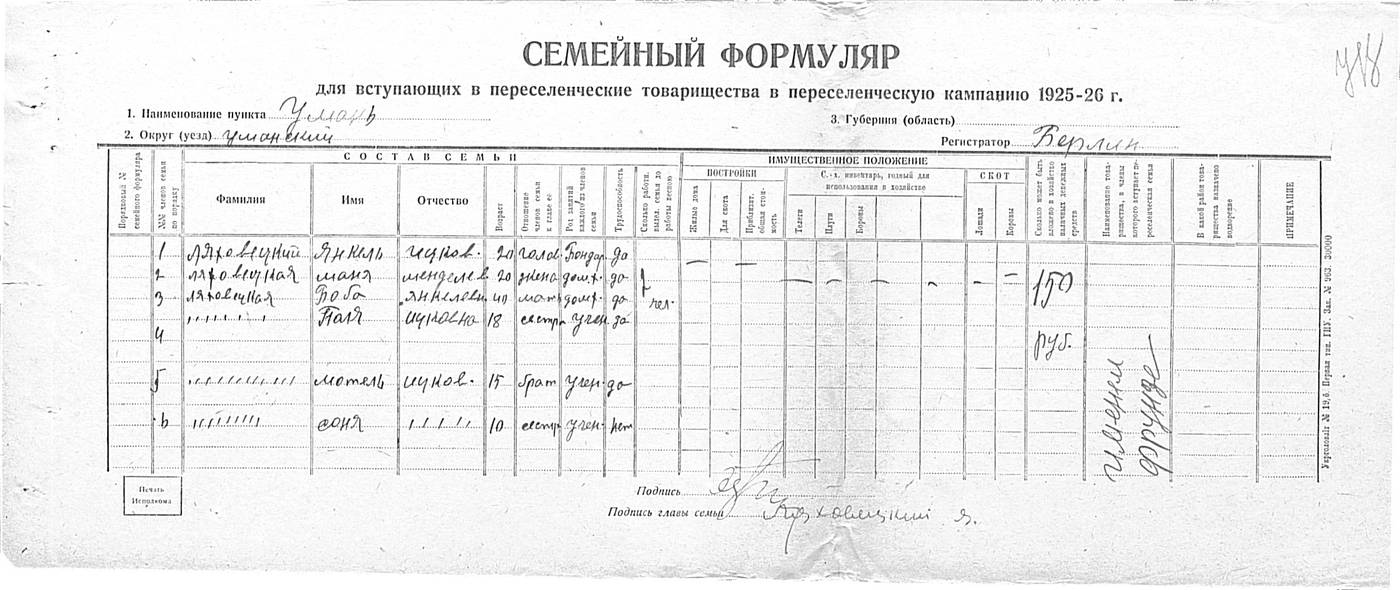 СЕМЕЙНЫЙ ФОРМУЛЯР
для вступающих в переселенческие товарищества в переселенческую кампанию 1925-26 г.
1. Наименование пункта Умань
3. Губерния (область)
2. Округ (уезд) уманский
Регистратор Берлин
Порядковый № семейного формуляра
№№ членов семьи по порядку
СОСТАВ СЕМЬИ
Фамилия Имя Отчество
Возраст
Отношение членов семьи к главе ее
Род занятий каждого из членов семьи
Трудоспособность
Сколько работн. вышл. семья до работы весною
ИМУЩЕСТВЕННОЕ ПОЛОЖЕНИЕ
ПОСТРОЙКИ
Жилые дома
Для скота
Приблизит. общая стоимость
С.-х. инвентарь, годный для использования в хозяйстве
Телеги
Плуги
Бороны
СКОТ
Лошади
Коровы
Сколько может быть вложено в хозяйство наличных денежных средств
Наименование товарищества, в члены которого вступает переселенческая семья
В какой район товарищества назначено водворение
ПРИМЕЧАНИЕ
1 Ляховецкий Янкель ицков. 20 голов. Бондар да — —
2 ляховецкая маня менделев. 20 жена дом.х. да
3 ляховецкая Боба янкелевн. 40 мать дом.х. да чел.
4 " " " " " " Паля ицковна 18 сестра учен. да
5 " " " " " " мотель ицков. 15 брат учен. да
6 " " " " " " соня " " " " " 10 сестра учен. нет
150 руб.
имени Фрунзе
Печать Исполкома
Подпись
Подпись главы семьи Ляховецкий Я.
Первая тип. ГИУ. Зак. № 963. 3000